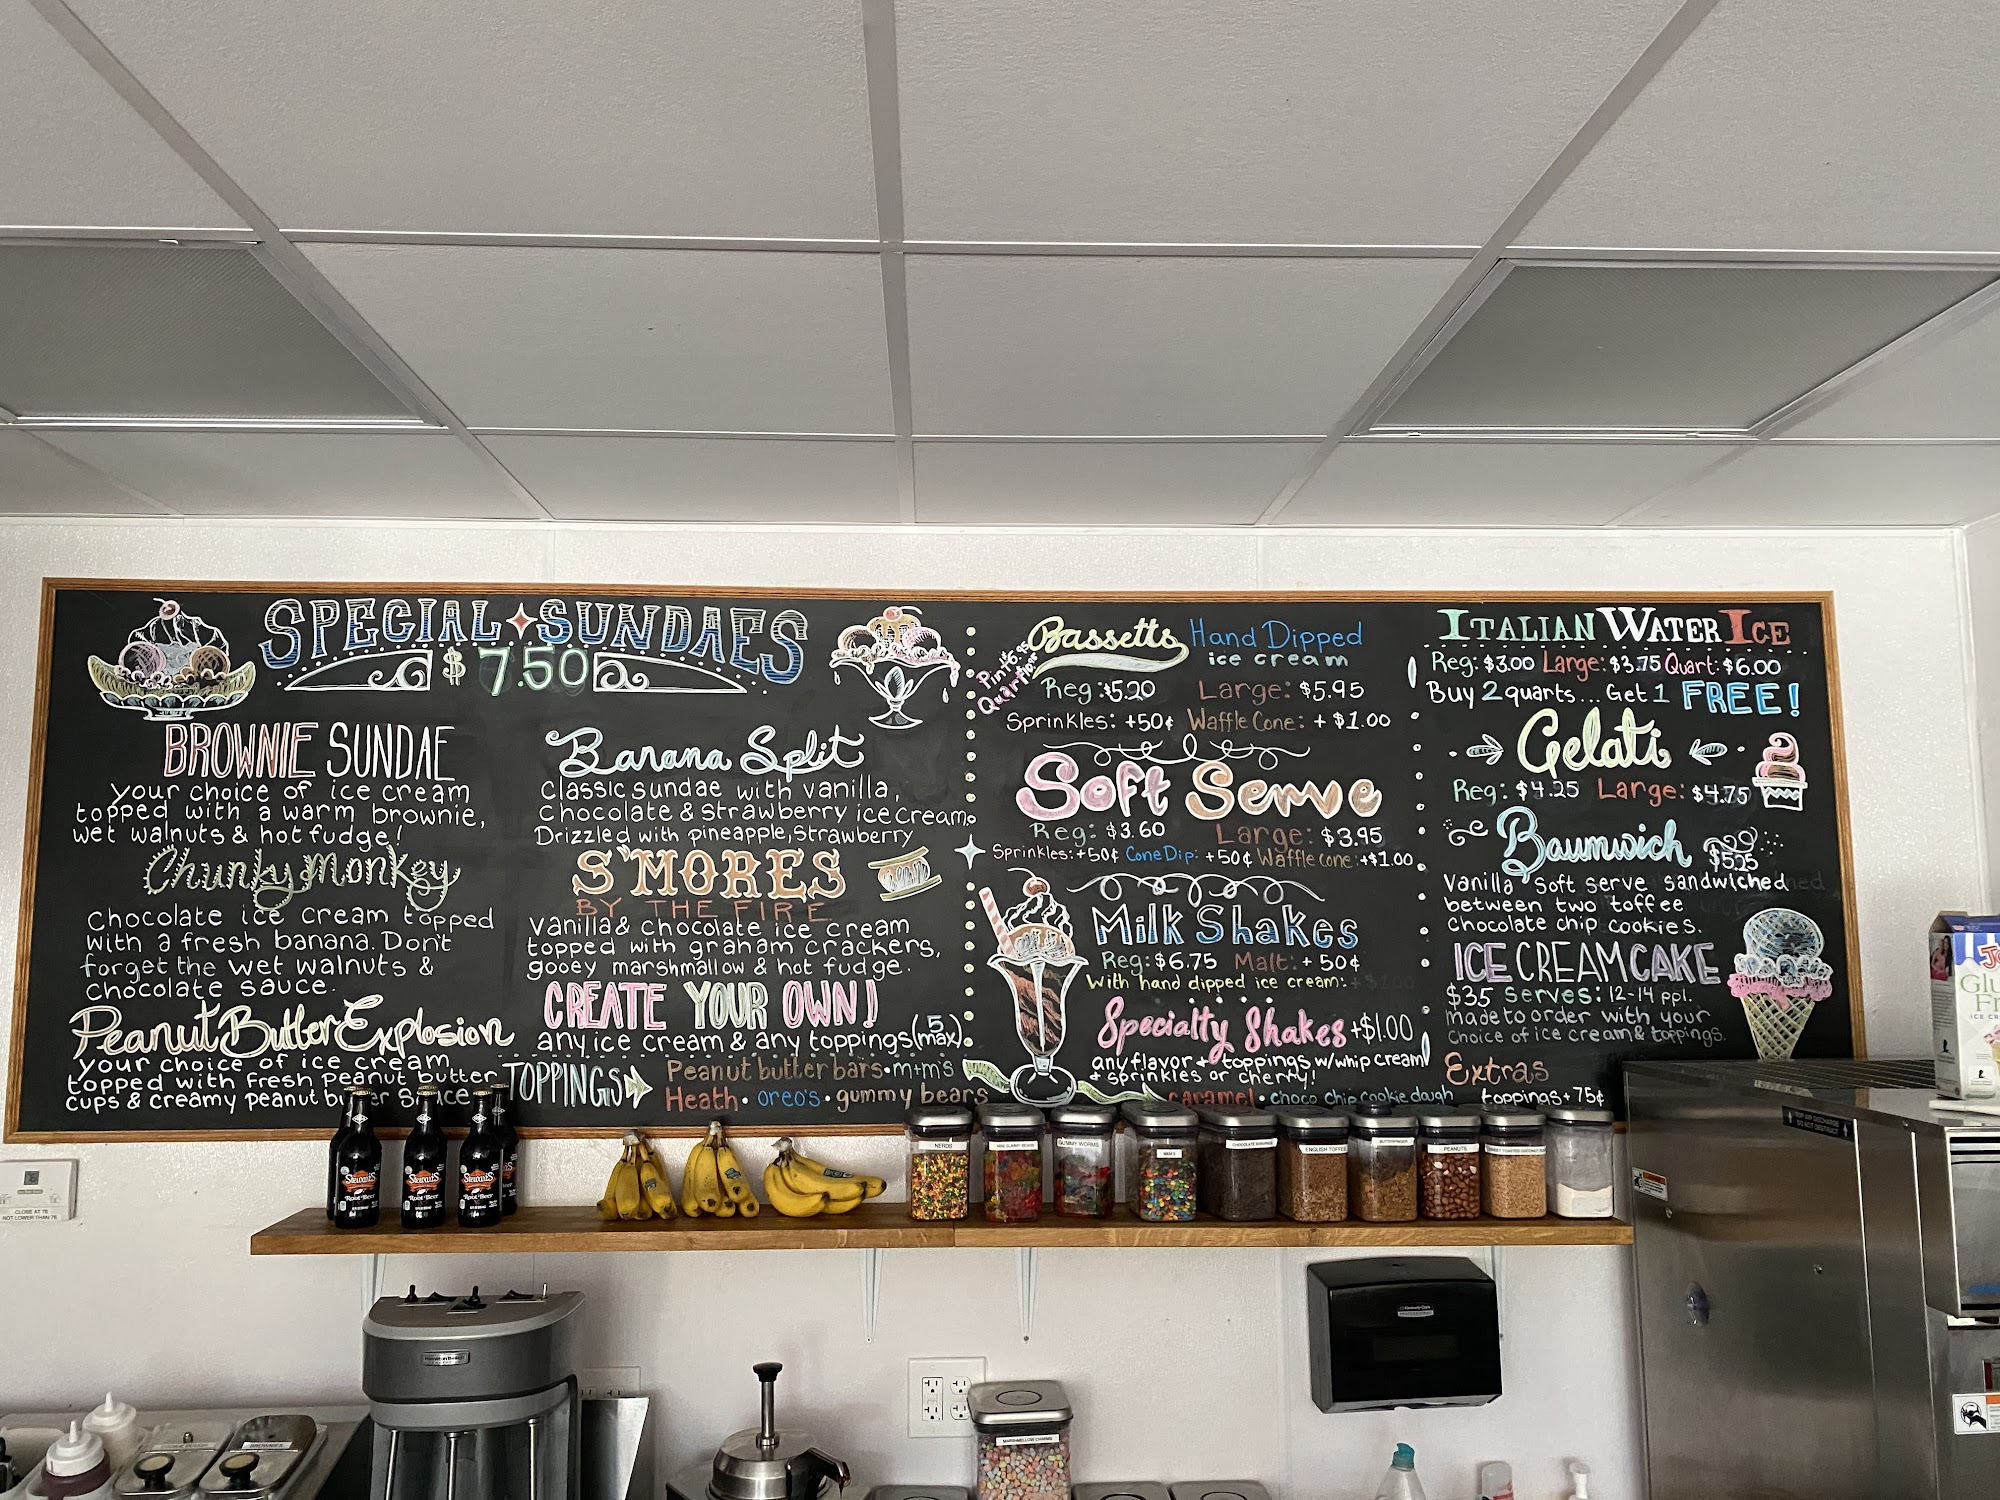 SPECIAL SUNDAES
$7.50
BROWNIE SUNDAE
your choice of ice cream
topped with a warm brownie,
wet walnuts & hot fudge!
Chunky Monkey
Chocolate ice cream topped
with a fresh banana. Don't
forget the wet walnuts &
chocolate sauce.
Peanut Butter Explosion
your choice of ice cream
topped with fresh peanut butter
cups & creamy peanut butter sauce
Banana Split
classic sundae with vanilla,
chocolate & strawberry ice cream.
Drizzled with pineapple, strawberry
S'MORES
BY THE FIRE
Vanilla & chocolate ice cream
topped with graham crackers,
gooey marshmallow & hot fudge.
CREATE YOUR OWN!
any ice cream & any toppings (5 max).
TOPPINGS
Peanut butter bars • m+m's
Heath • oreo's • gummy bears
caramel • choco chip cookie dough
Bassetts Hand Dipped
ice cream
Reg: $5.20 Large: $5.95
Sprinkles: +50¢ Waffle Cone: + $1.00
Soft Serve
Reg: $3.60 Large: $3.95
Sprinkles: +50¢ Cone Dip: +50¢ Waffle cone: +$1.00
Milk Shakes
Reg: $6.75 Malt: + 50¢
With hand dipped ice cream:
Specialty Shakes +$1.00
any flavor + toppings w/whip cream
+ sprinkles or cherry!
ITALIAN WATER ICE
Reg: $3.00 Large: $3.75 Quart: $6.00
Buy 2 quarts... Get 1 FREE!
Gelati
Reg: $4.25 Large: $4.75
Baumwich $5.25
Vanilla soft serve sandwiched
between two toffee
chocolate chip cookies.
ICE CREAM CAKE
$35 serves: 12-14 ppl.
made to order with your
choice of ice cream & toppings.
Extras
toppings + 75¢
Stewart's
Root Beer
Stewart's
Root Beer
Stewart's
Root Beer
NERDS
MINI GUMMY BEARS
GUMMY WORMS
M&M'S
ENGLISH TOFFEE
BUTTERFINGER
PEANUTS
CLOSE AT 76
NOT LOWER THAN 76
Hamilton Beach
BROWNIES
MARSHMALLOW CHARMS